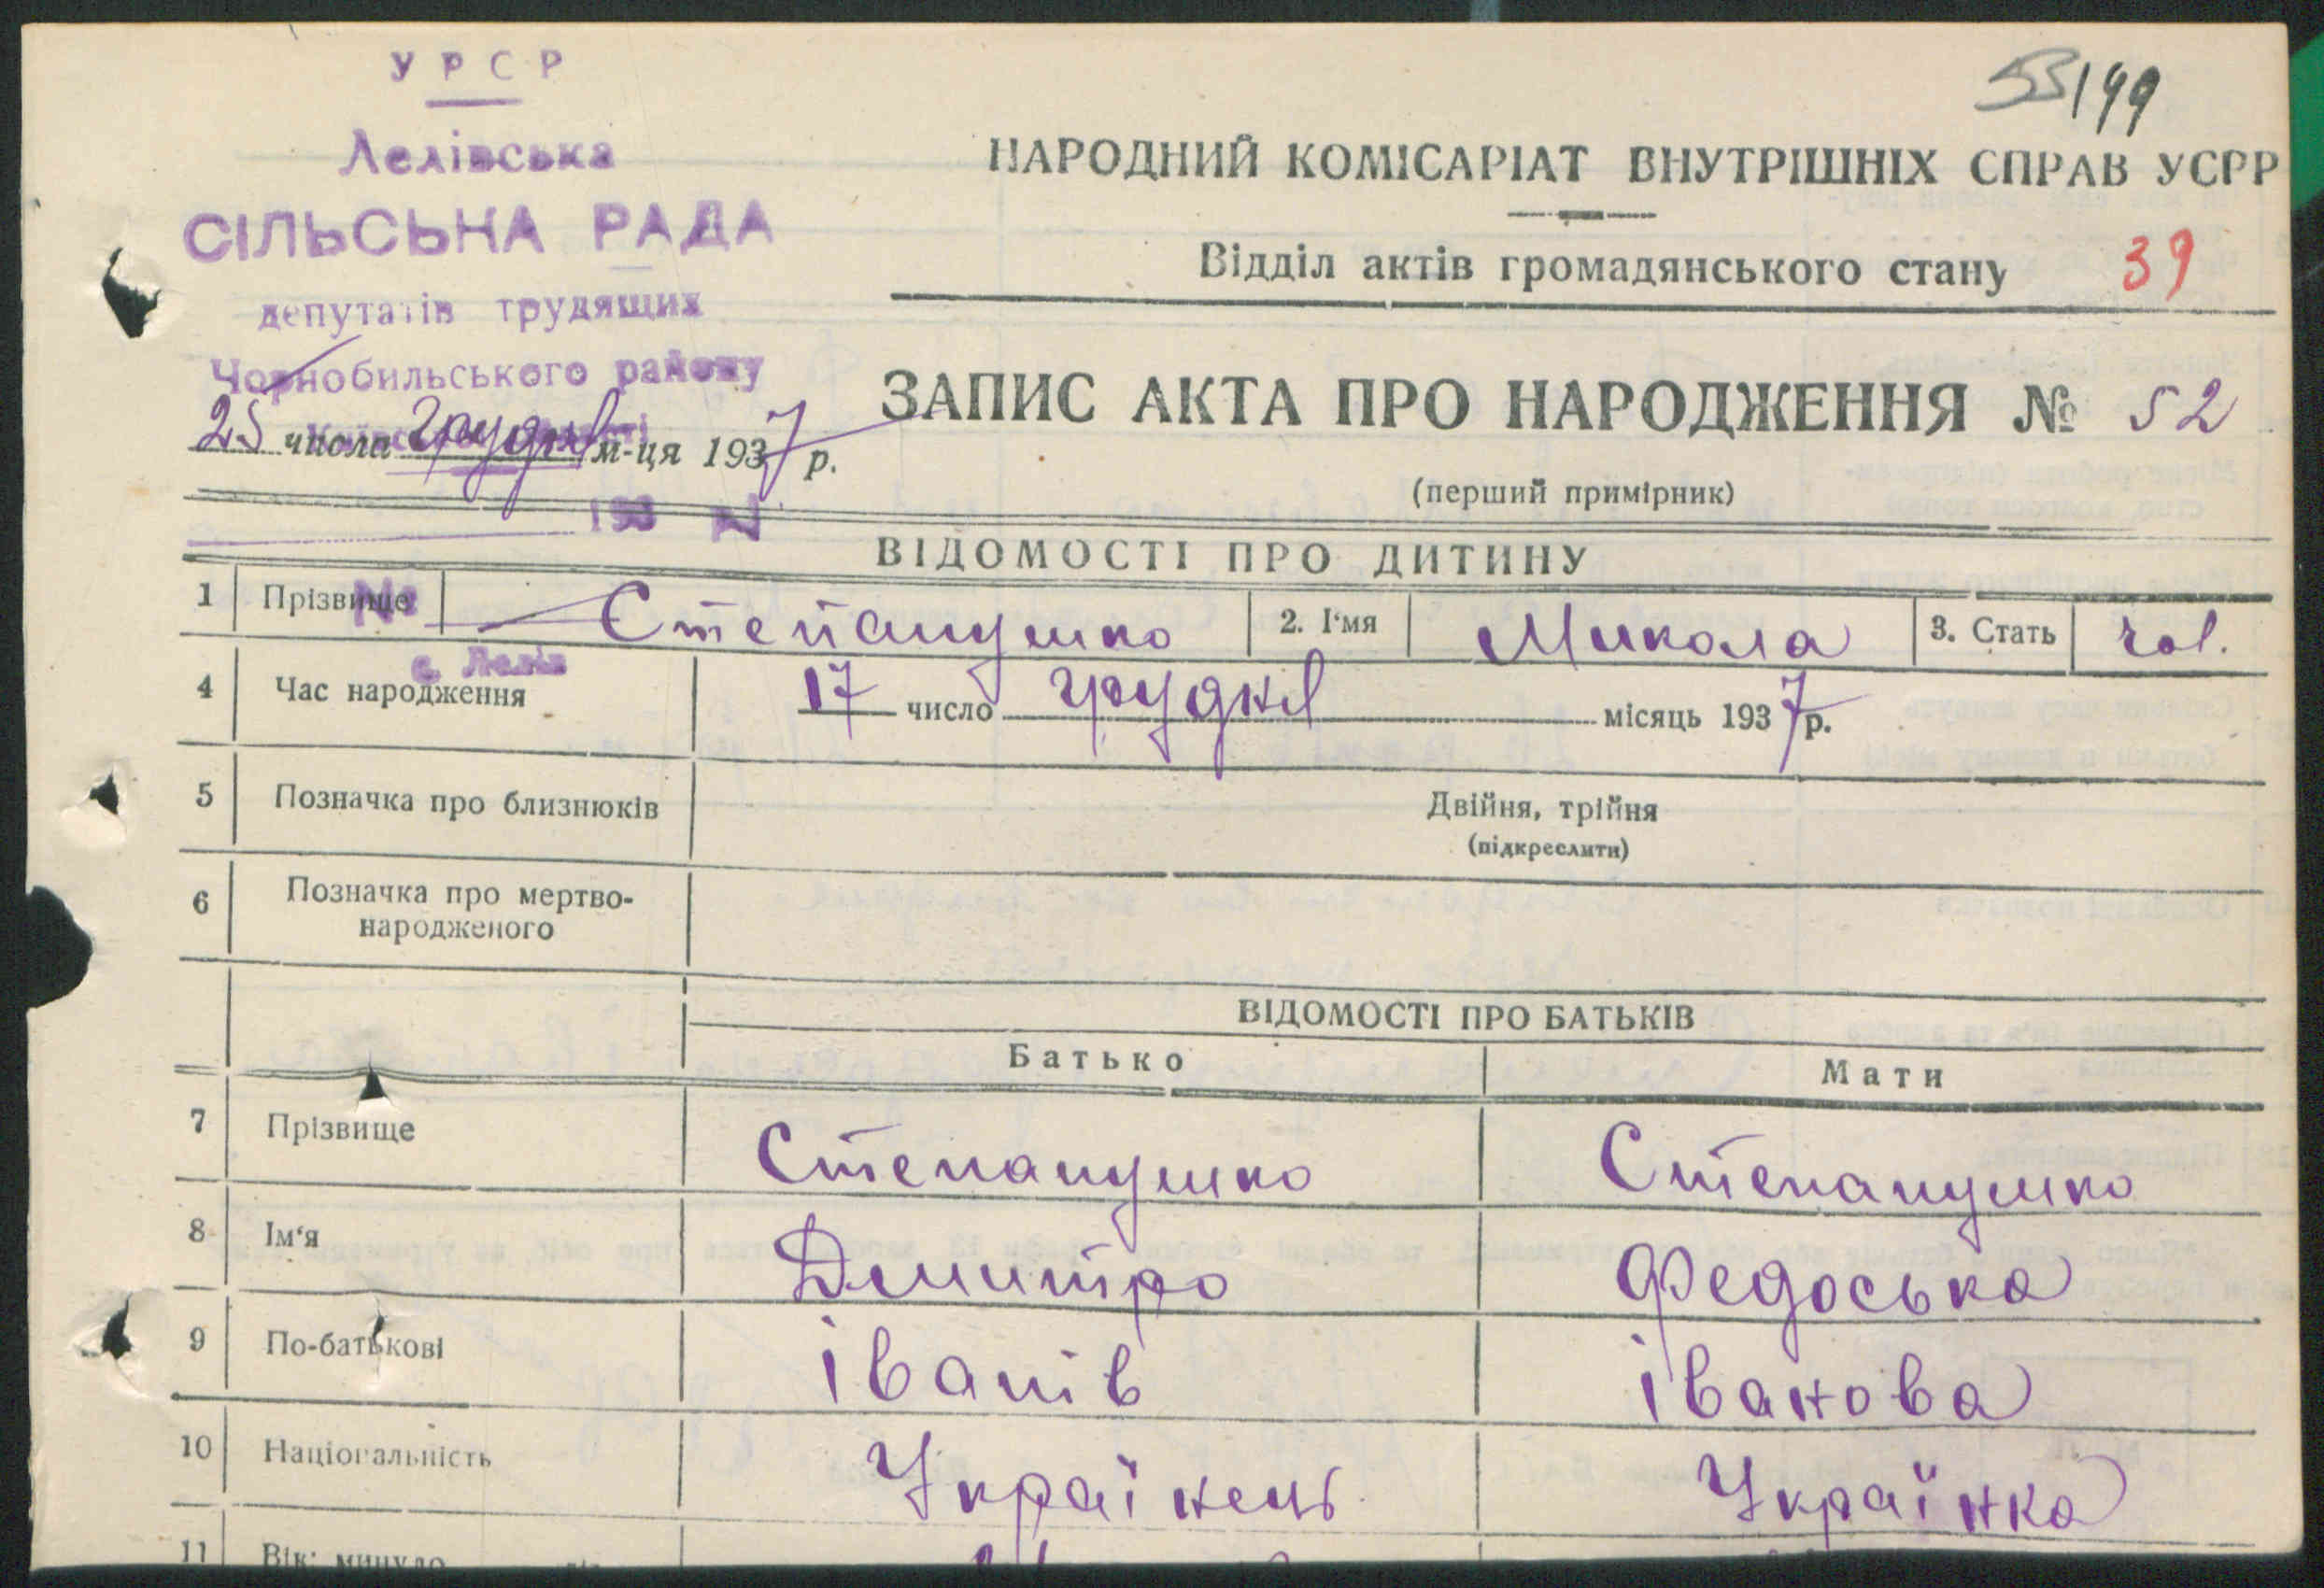 УРСР
Лелівська
СІЛЬСЬКА РАДА
депутатів трудящих
Чорнобильського району
25 числа Грудня м-ця 1937 р.
193
№
с. Лелів
53/199
НАРОДНИЙ КОМІСАРІАТ ВНУТРІШНІХ СПРАВ УСРР
Відділ актів громадянського стану 39
ЗАПИС АКТА ПРО НАРОДЖЕННЯ № 52
(перший примірник)
ВІДОМОСТІ ПРО ДИТИНУ
1 Прізвище Степанушко 2. І'мя Микола 3. Стать чол.
4 Час народження 17 число грудня місяць 1937 р.
5 Позначка про близнюків Двійня, трійня
(підкреслити)
6 Позначка про мертво-
народженого
ВІДОМОСТІ ПРО БАТЬКІВ
Батько Мати
7 Прізвище Степанушко Степанушко
8 Ім'я Дмитро Федоська
9 По-батькові іванів іванова
10 Національність Українець Українка
11 Вік: минуло